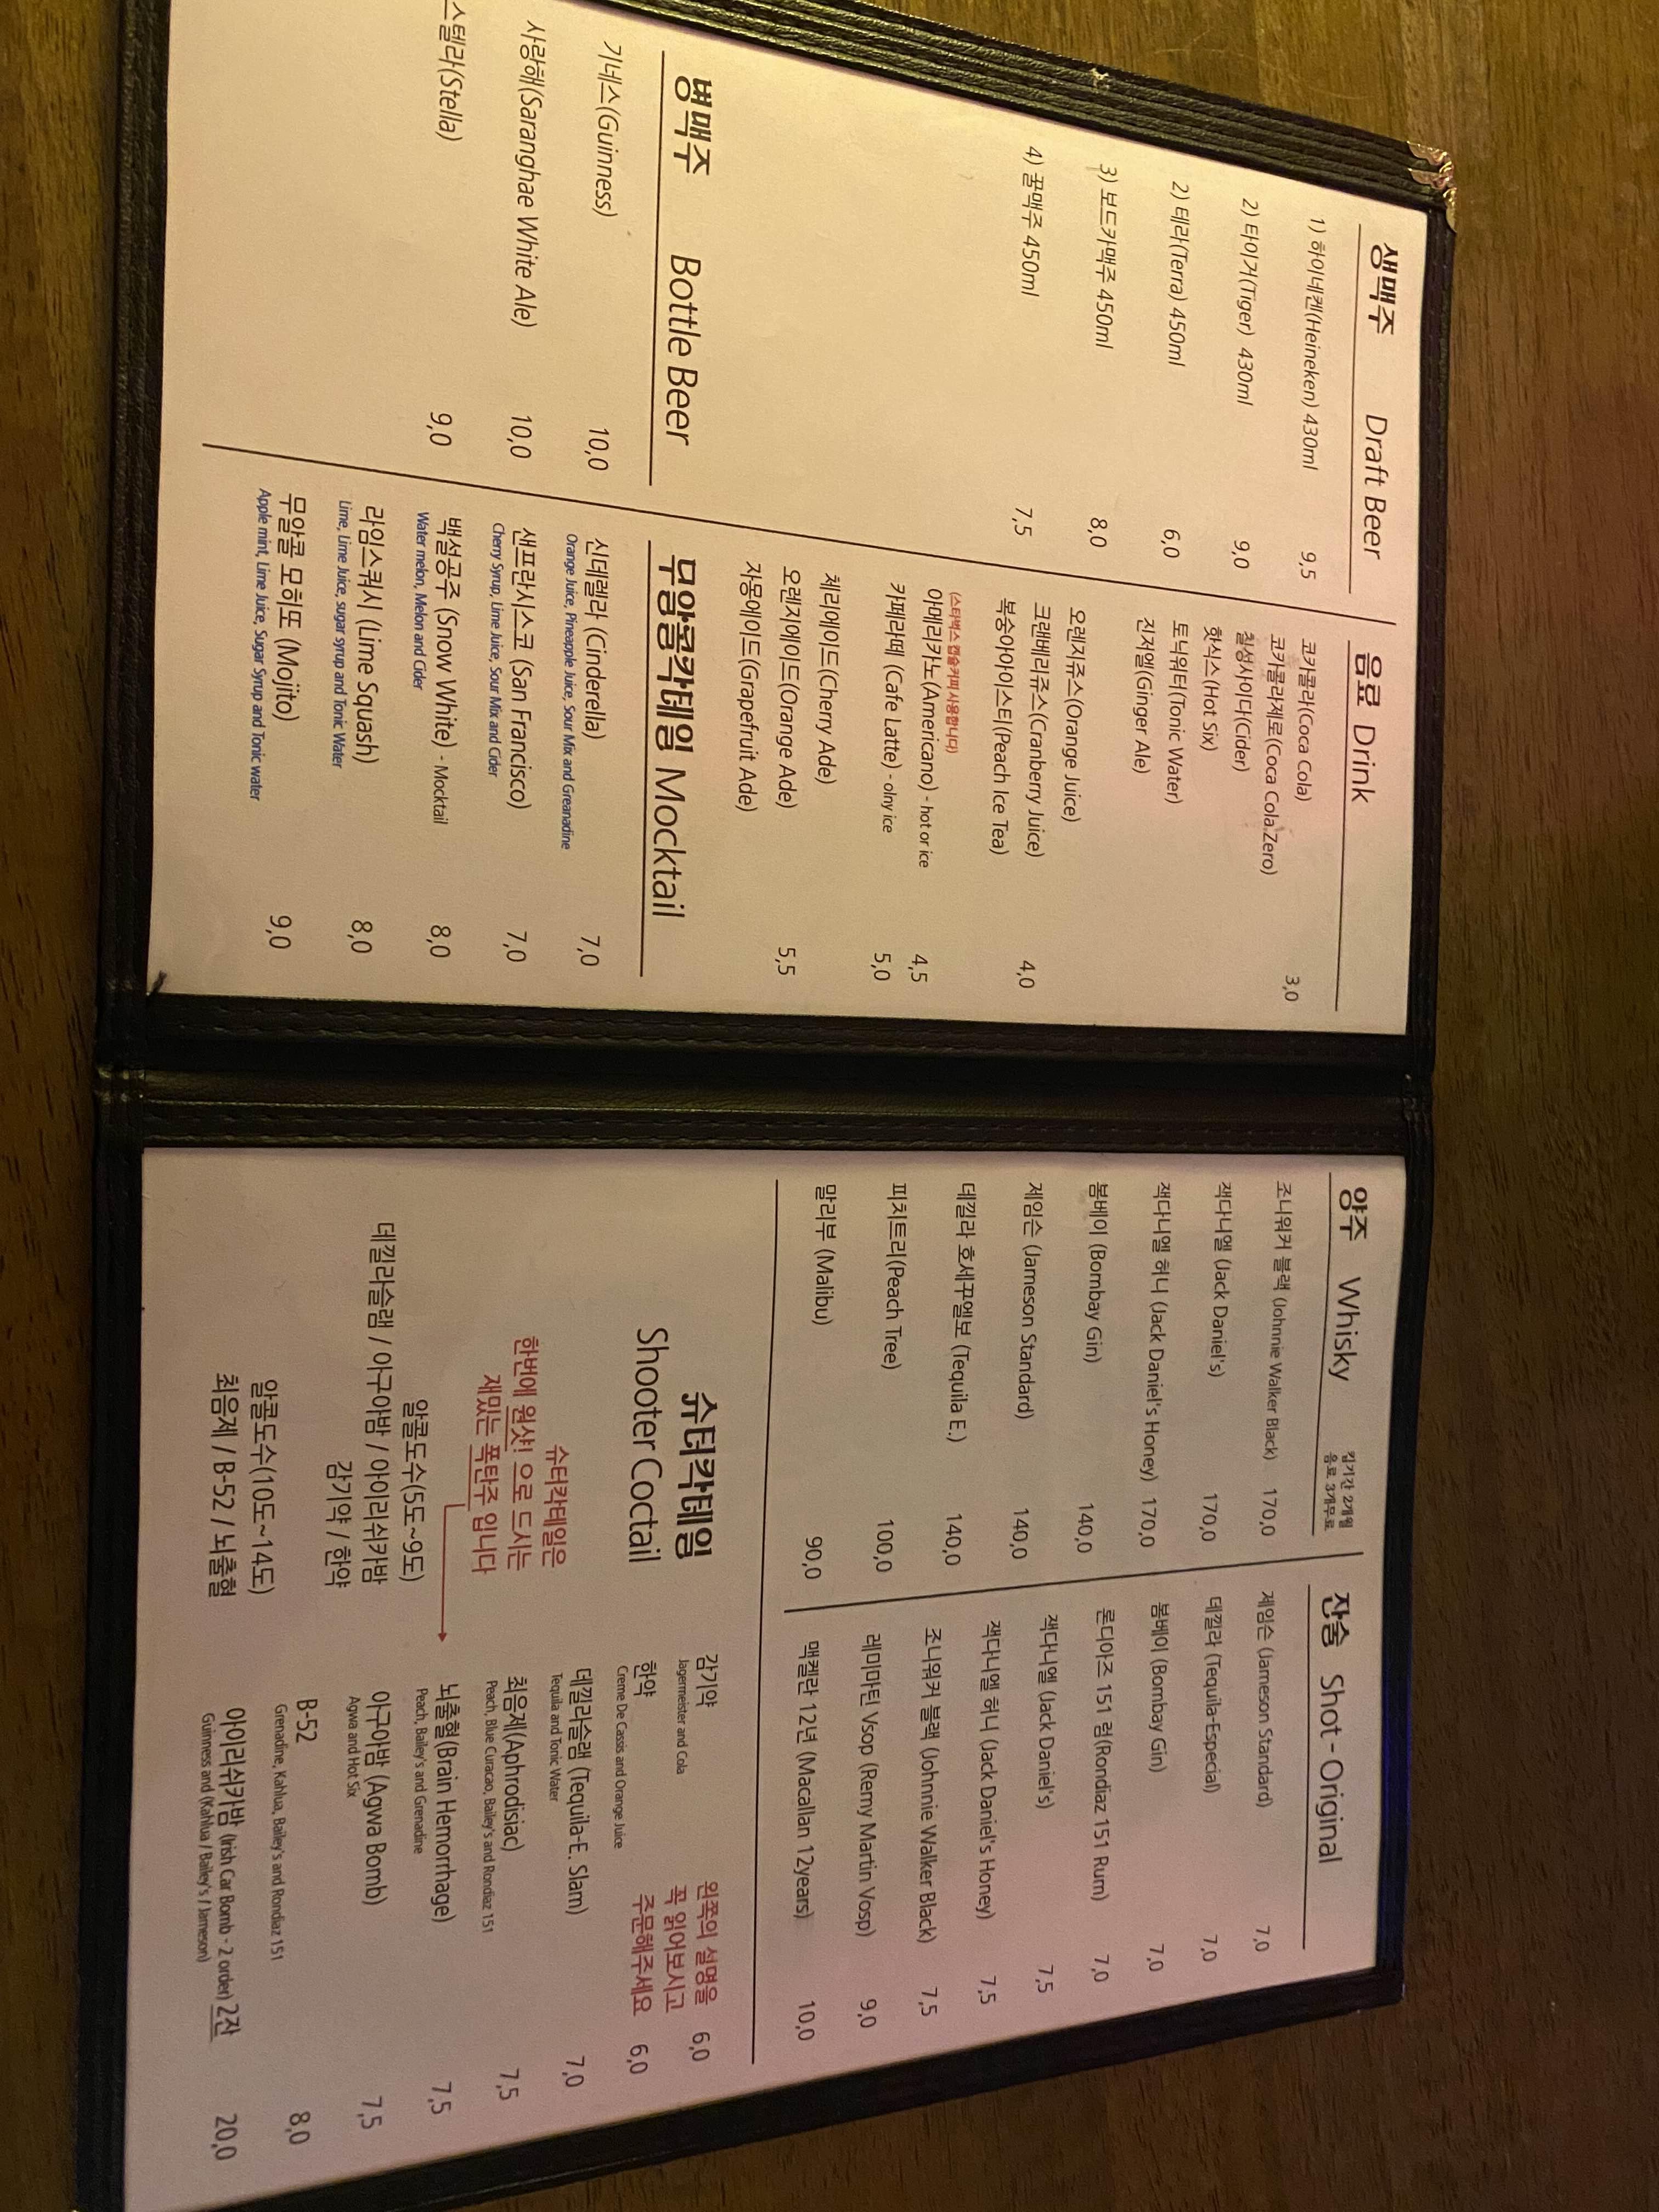 생맥주 Draft Beer
1) 하이네켄(Heineken) 430ml 9,5
2) 타이거(Tiger) 430ml 9,0
2) 테라(Terra) 450ml 6,0
3) 보드카맥주 450ml 8,0
4) 꿀맥주 450ml 7,5
병맥주 Bottle Beer
기네스(Guinness) 10,0
사랑해(Saranghae White Ale) 10,0
스텔라(Stella) 9,0
음료 Drink
코카콜라(Coca Cola)
코카콜라제로(Coca Cola.Zero) 3,0
칠성사이다(Cider)
핫식스(Hot Six)
토닉워터(Tonic Water)
진저엘(Ginger Ale)
오렌지쥬스(Orange Juice)
크랜베리쥬스(Cranberry Juice) 4,0
복숭아아이스티(Peach Ice Tea)
(스타벅스 캡슐커피 사용합니다)
아메리카노(Americano) - hot or ice 4,5
카페라떼 (Cafe Latte) - olny ice 5,0
체리에이드(Cherry Ade)
오렌지에이드(Orange Ade) 5,5
자몽에이드(Grapefruit Ade)
무알콜칵테일 Mocktail
신데렐라 (Cinderella) 7,0
Orange Juice, Pineapple Juice, Sour Mix and Greanadine
샌프란시스코 (San Francisco) 7,0
Cherry Syrup, Lime Juice, Sour Mix and Cider
백설공주 (Snow White) - Mocktail 8,0
Water melon, Melon and Cider
라임스쿼시 (Lime Squash) 8,0
Lime, Lime Juice, sugar syrup and Tonic Water
무알콜 모히또 (Mojito) 9,0
Apple mint, Lime Juice, Sugar Syrup and Tonic water
양주 Whisky
킵기간 2개월
음료 3개무료
조니워커 블랙 (Johnnie Walker Black) 170,0
잭다니엘 (Jack Daniel's) 170,0
잭다니엘 허니 (Jack Daniel's Honey) 170,0
봄베이 (Bombay Gin) 140,0
제임슨 (Jameson Standard) 140,0
데낄라 호세꾸엘보 (Tequila E.) 140,0
피치트리(Peach Tree) 100,0
말리부 (Malibu) 90,0
잔술 Shot - Original
제임슨 (Jameson Standard) 7,0
데낄라 (Tequila-Especial) 7,0
봄베이 (Bombay Gin) 7,0
론디아즈 151 럼(Rondiaz 151 Rum) 7,0
잭다니엘 (Jack Daniel's) 7,5
잭다니엘 허니 (Jack Daniel's Honey) 7,5
조니워커 블랙 (Johnnie Walker Black) 7,5
레미마틴 Vsop (Remy Martin Vosp) 9,0
맥켈란 12년 (Macallan 12years) 10,0
슈터칵테일
Shooter Coctail
슈터칵테일은
한번에 원샷! 으로 드시는
재밌는 폭탄주 입니다
알콜도수(5도~9도)
데낄라슬램 / 아구아밤 / 아이리쉬카밤
감기약 / 한약
알콜도수(10도~14도)
최음제 / B-52 / 뇌출혈
왼쪽의 설명을
꼭 읽어보시고
주문해주세요
감기약 6,0
Jagermeister and Cola
한약 6,0
Creme De Cassis and Orange Juice
데낄라슬램 (Tequila-E. Slam) 7,0
Tequila and Tonic Water
최음제(Aphrodisiac) 7,5
Peach, Blue Curacao, Bailey's and Rondiaz 151
뇌출혈(Brain Hemorrhage) 7,5
Peach, Bailey's and Grenadine
아구아밤 (Agwa Bomb) 7,5
Agwa and Hot Six
B-52 8,0
Grenadine, Kahlua, Bailey's and Rondiaz 151
아이리쉬카밤 (Irish Car Bomb - 2 order) 2잔 20,0
Guinness and (Kahlua / Bailey's / Jameson)